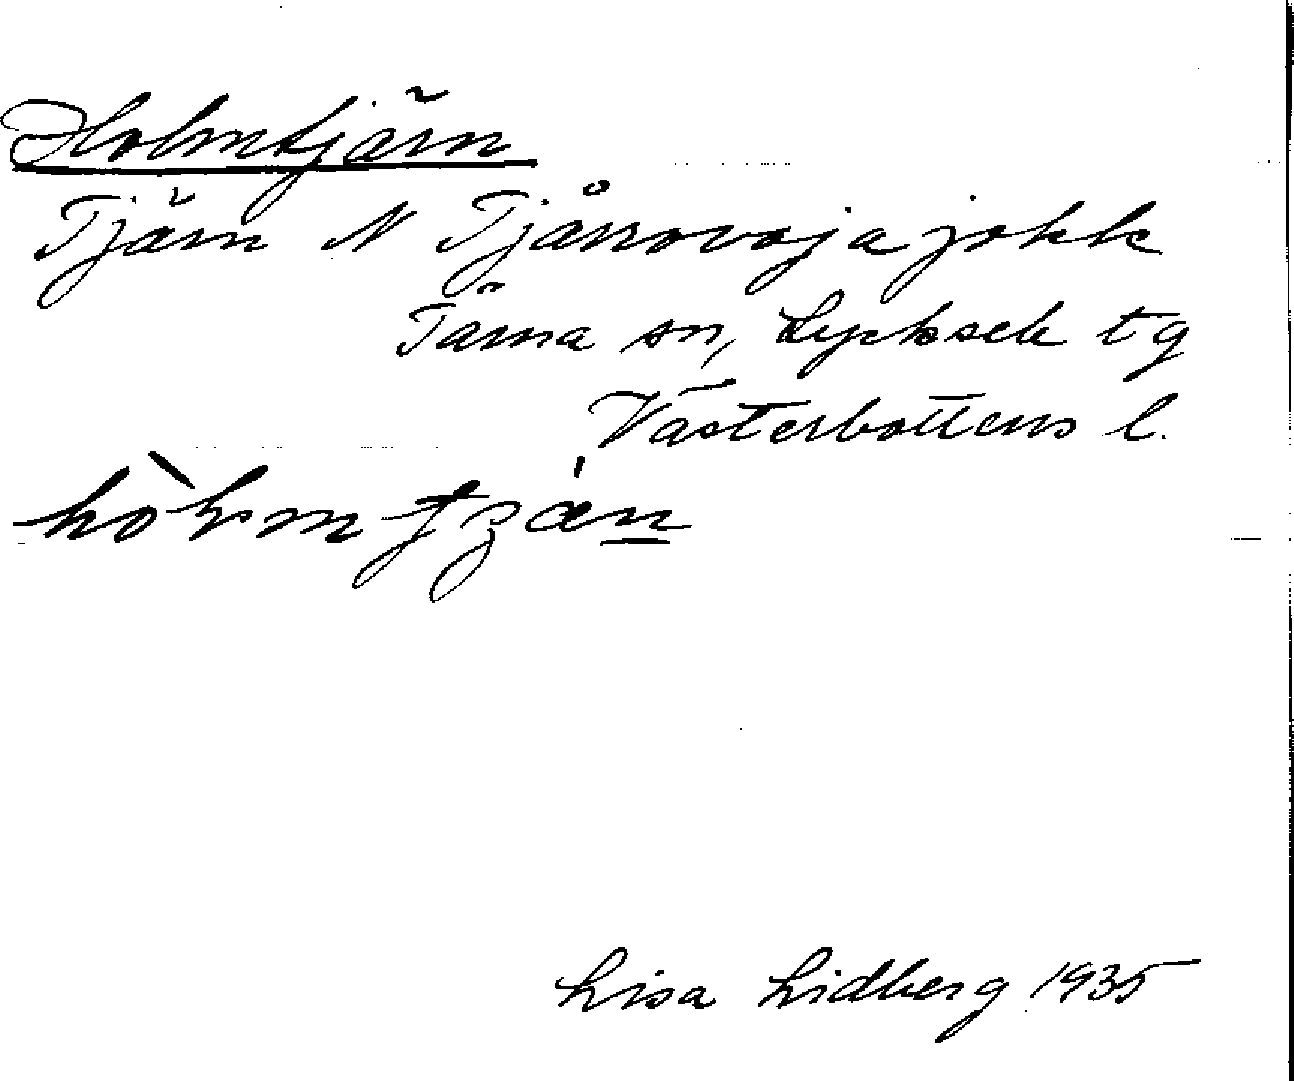 Holmtjärn
Tjärn N Tjårrovajajokk
Tärna sn, Lycksele tg
Västerbottens l.
Lisa Lidberg 1935